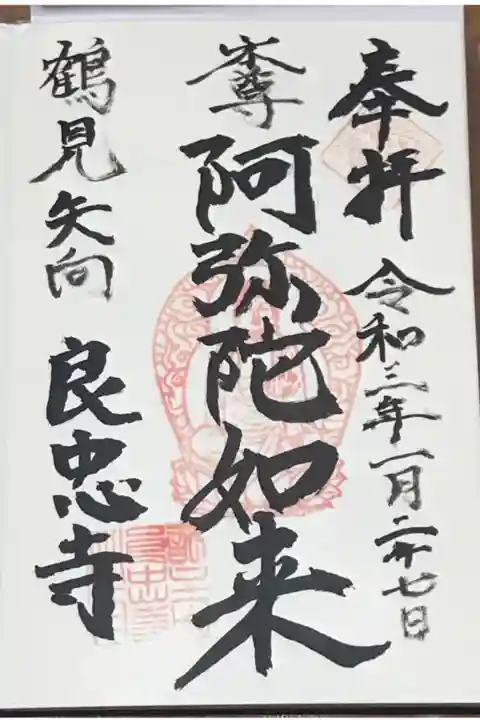 奉拝 令和三年一月二十七日
本尊 阿弥陀如来
鶴見矢向 良忠寺